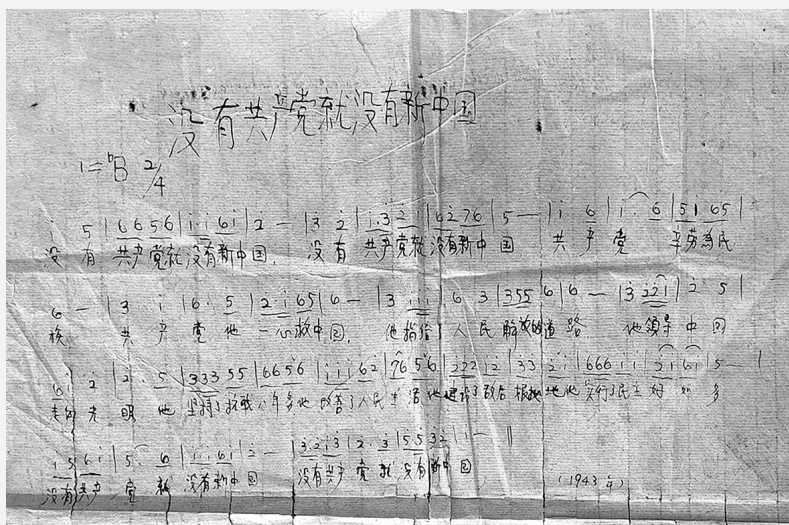 没有共产党就没有新中国
1=♭B 2/4
i 5 | 6 6 5 6 | i. i 6 i | 2 — | 3 2 | i. 3 2 i | 6 2 7 6 | 5 — | i 6 | i. 6 | 5 1 6 5 |
没有 共产党就 没有新中国, 没有 共产党就 没有新中国 共产党 辛劳為民
6 — | 3 i | 6. 5 | 2 i 6 5 | 6 — | 3 i i i | 6 3 | 3 5 5 6 | 6 — | 3 2 2 i | 2 5 |
族 共产党他 一心救中国, 他指给了人民解放的道路 他领导中国
6 i 2 | 2. 5 | 3 3 3 5 5 | 6 6 5 6 | i i i 6 2 | 7 6 5 6 | 2 2 2 i 2 | 3 3 2 i | 6 6 6 i i | 3 i 6 i | 5 |
走向光明 他坚持了抗战八年多他改善了人民生活他建设了敌后根据地他实行了民主好如多
i 5 6 i | 5. 6 | i i 6 i | 2 — | 3. 2 i 3 | 2. 3 | 5 5 3 2 | i — ‖
没有共产党就没有新中国 没有共产党就没有新中国
(1943年)